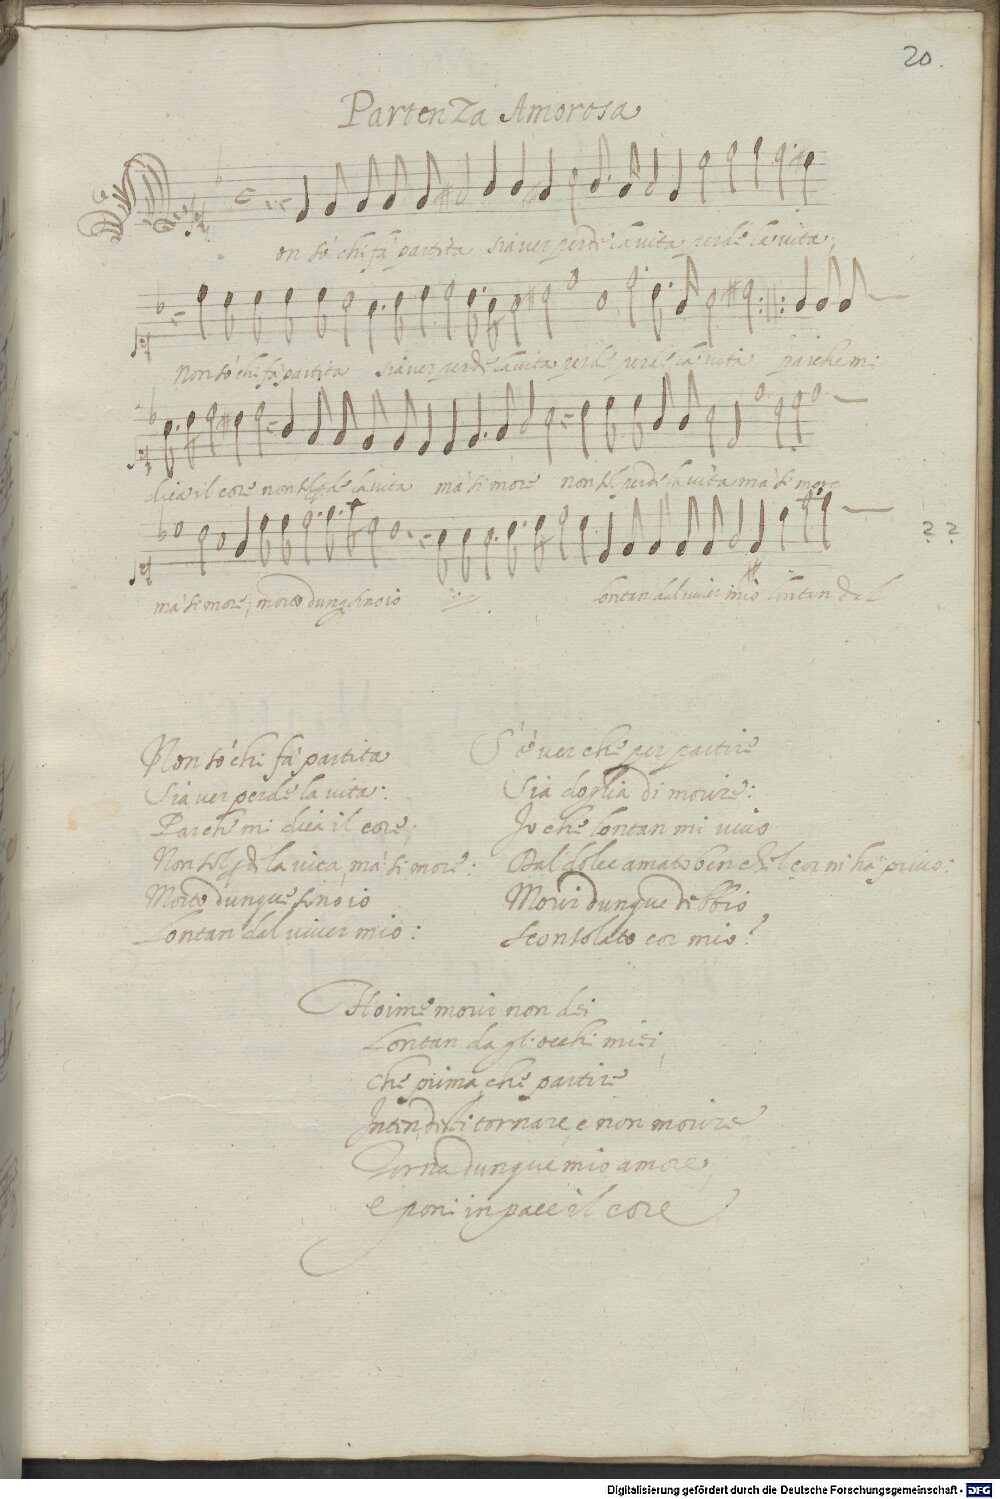 20.
Partenza Amorosa
on so chi fa partita sia ver perde la vita perde la vita,
Non so chi fa partita sia ver perde la vita perde perde la vita par che mi
dica il core non sol perde la vita ma si more non sol perde la vita ma si more
ma si more, morto dunque son io lontan dal viver mio lontan dal
? ?
Non so chi fa partita
Sia ver perde la vita:
Par che mi dica il core,
Non sol perde la vita, ma si more:
Morto dunque son io
Lontan dal viver mio:
S'è ver che per partire
Sia doglia di morire:
Io che lontan mi vivo
Dal dolce amato ben ch'el cor m'ha privo:
Morir dunque debb'io
Sconsolato cor mio?
Hoime morir non dei
Lontan da gl'occhi miei
Che prima, che partire
Intendili tornare, e non morire
Torna dunque mio amore,
e poni in pace il core
Digitalisierung gefördert durch die Deutsche Forschungsgemeinschaft - DFG